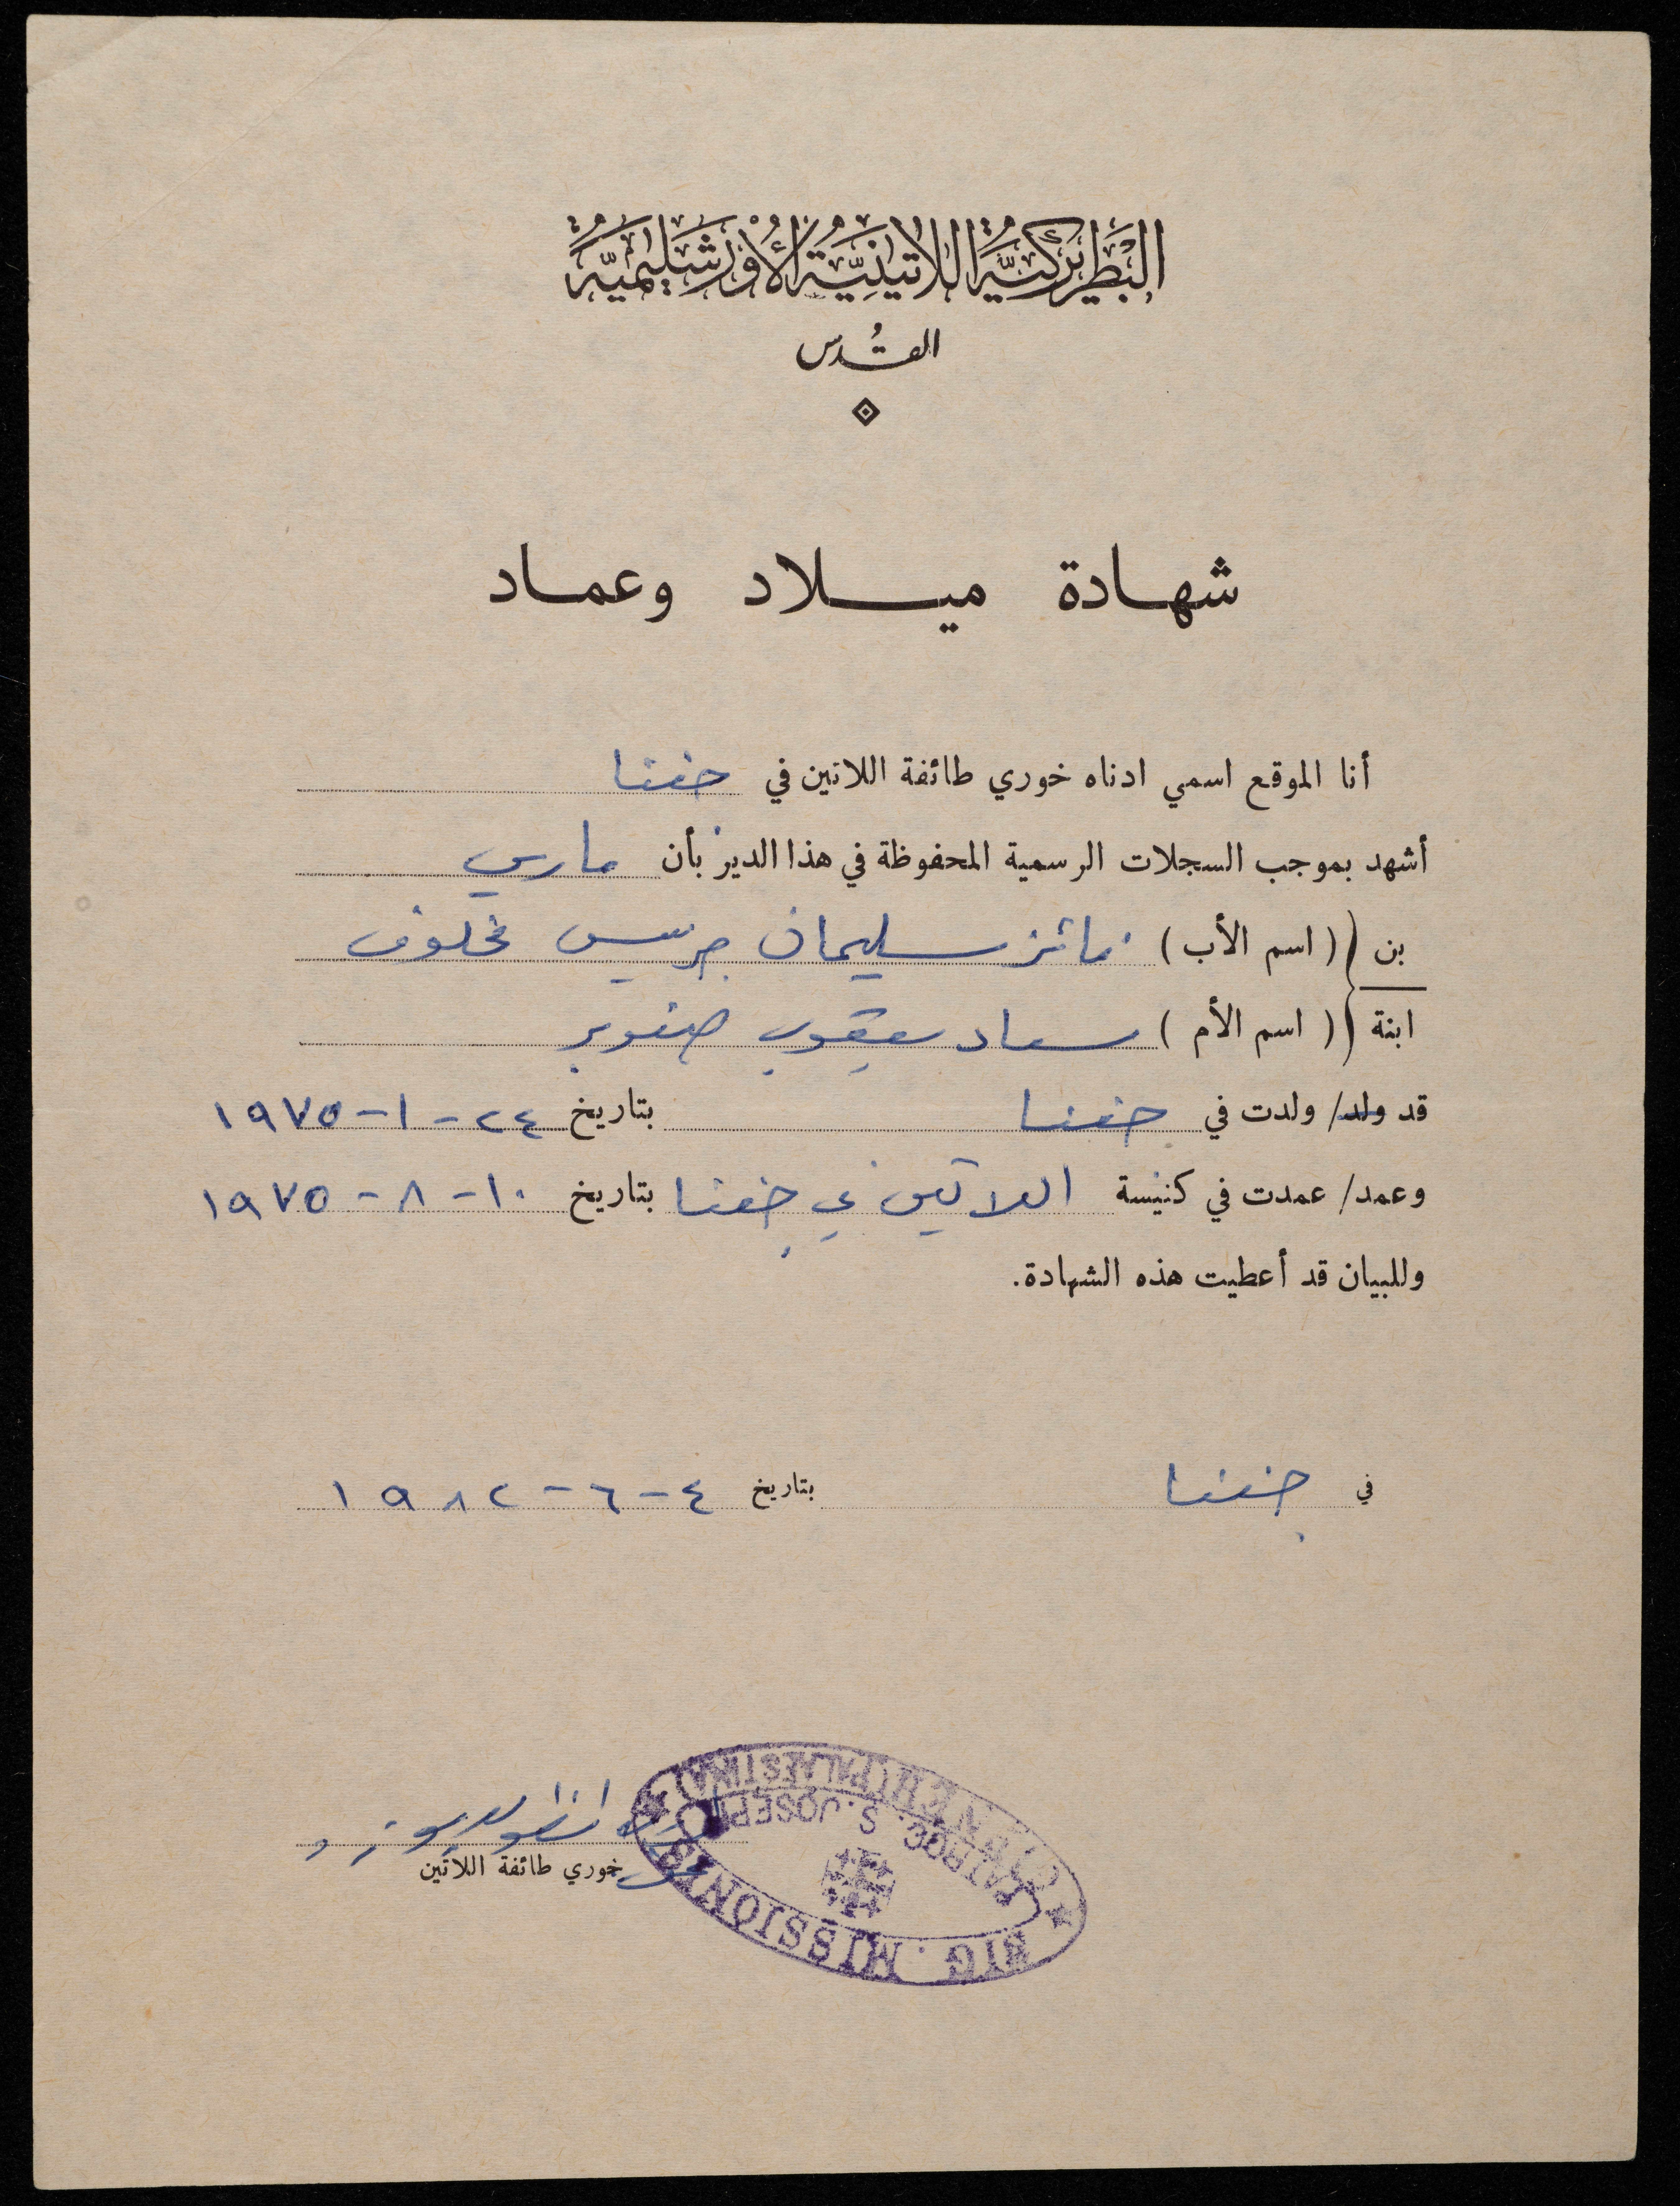 البَطْرِيَرْكِيَّةُ اللاتِينِيَّةُ الأُورَشَلِيمِيَّةُ
القُدس
شهادة ميلاد وعماد
أنا الموقع اسمي ادناه خوري طائفة اللاتين في جفنا
أشهد بموجب السجلات الرسمية المحفوظة في هذا الدير بأن ماري
بن ( اسم الأب ) فائز سليمان جريس مخلوف
ابنة ( اسم الأم ) سعاد يعقوب صنوبر
قد ولد/ ولدت في جفنا بتاريخ ٢٤-١-١٩٧٥
وعمد/ عمدت في كنيسة اللاتين في جفنا بتاريخ ١٠-٨-١٩٧٥
وللبيان قد أعطيت هذه الشهادة.
في جفنا بتاريخ ٤-٦-١٩٨٢
خوري طائفة اللاتين
SIG. MISSIONIS
(PALAESTINA)
PAROC. S. JOSEPH